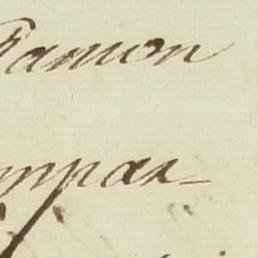 Ramon
mpar-